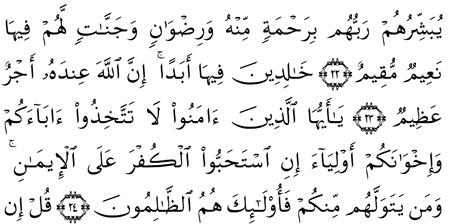 يُبَشِّرُهُمْ رَبُّهُم بِرَحْمَةٍ مِّنْهُ وَرِضْوَٰنٍ وَجَنَّٰتٍ لَّهُمْ فِيهَا
نَعِيمٌ مُّقِيمٌ ﴿٢١﴾ خَٰلِدِينَ فِيهَآ أَبَدًا ۚ إِنَّ ٱللَّهَ عِندَهُۥٓ أَجْرٌ
عَظِيمٌ ﴿٢٢﴾ يَٰٓأَيُّهَا ٱلَّذِينَ ءَامَنُوا۟ لَا تَتَّخِذُوٓا۟ ءَابَآءَكُمْ
وَإِخْوَٰنَكُمْ أَوْلِيَآءَ إِنِ ٱسْتَحَبُّوا۟ ٱلْكُفْرَ عَلَى ٱلْإِيمَٰنِ ۚ
وَمَن يَتَوَلَّهُم مِّنكُمْ فَأُو۟لَٰٓئِكَ هُمُ ٱلظَّٰلِمُونَ ﴿٢٣﴾ قُلْ إِن